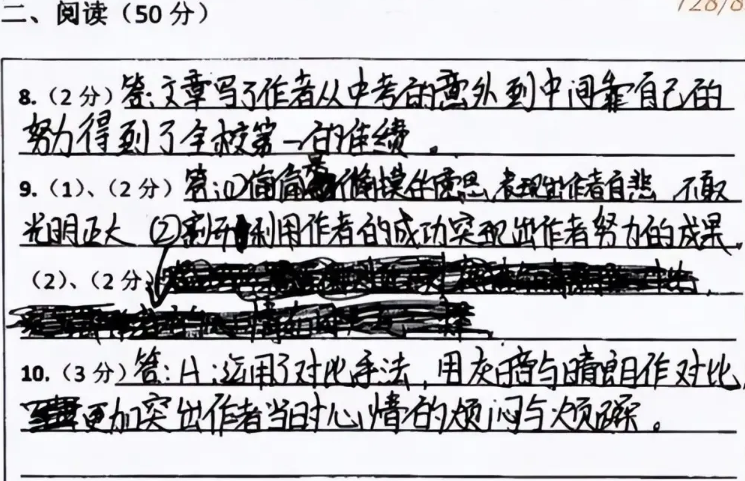 二、阅读（50 分）
128/8
8.（2 分）答:文章写了作者从中考的意外到中间靠自己的
努力得到了全校第一的佳绩。
9.（1）、（2 分）答:①偷偷 偷摸的意思,表现出作者自悲,不敢
光明正大 ②利用作者的成功突现出作者努力的成果。
（2）、（2 分）
10.（3 分）答:A:运用了对比手法,用灰暗与晴朗作对比,
更加突出作者当时心情的烦闷与烦躁。